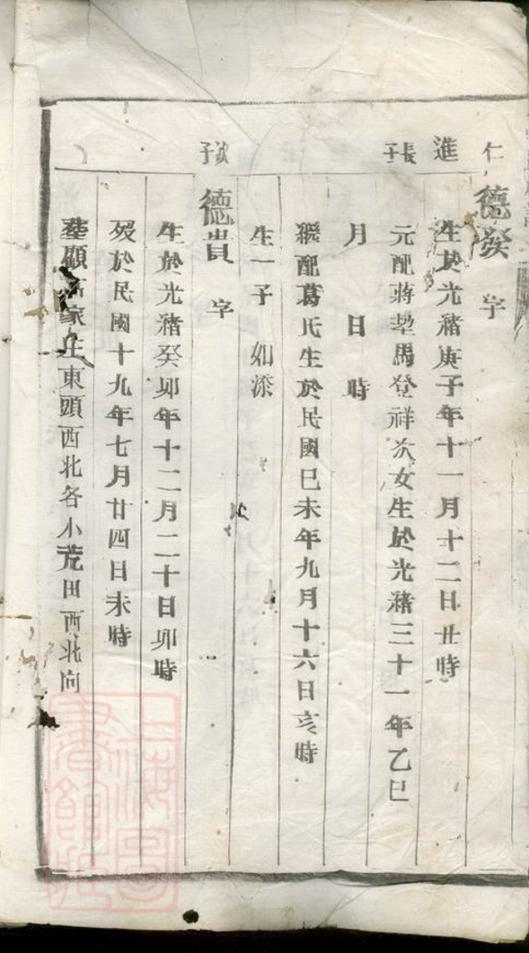 仁進長子
德發 字
生於光緒庚子年十一月十二日丑時
元配蔣墅馬登祥次女生於光緒三十一年乙巳
月 日 時
繼配葛氏生於民國己未年九月十六日亥時
生一子 如
次子
德貴 字
生於光緒癸卯年十二月二十日卯時
歿於民國十九年七月廿四日未時
墓顧家庄東頭西北各小荒田西北向
上海圖書館藏